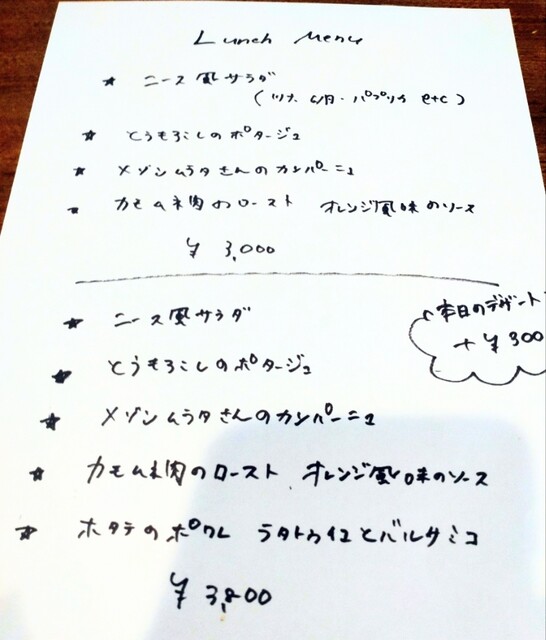 Lunch Menu
★ ニース風サラダ
(ツナ、卵・パプリカ e+c)
★ とうもろこしのポタージュ
★ メゾンムラタさんのカンパーニュ
★ カモムネ肉のロースト オレンジ風味のソース
¥ 3,000
★ ニース風サラダ
本日のデザート
+ ¥300
★ とうもろこしのポタージュ
★ メゾンムラタさんのカンパーニュ
★ カモムネ肉のロースト オレンジ風味のソース
★ ホタテのポワレ ラタトゥイユとバルサミコ
¥ 3,800